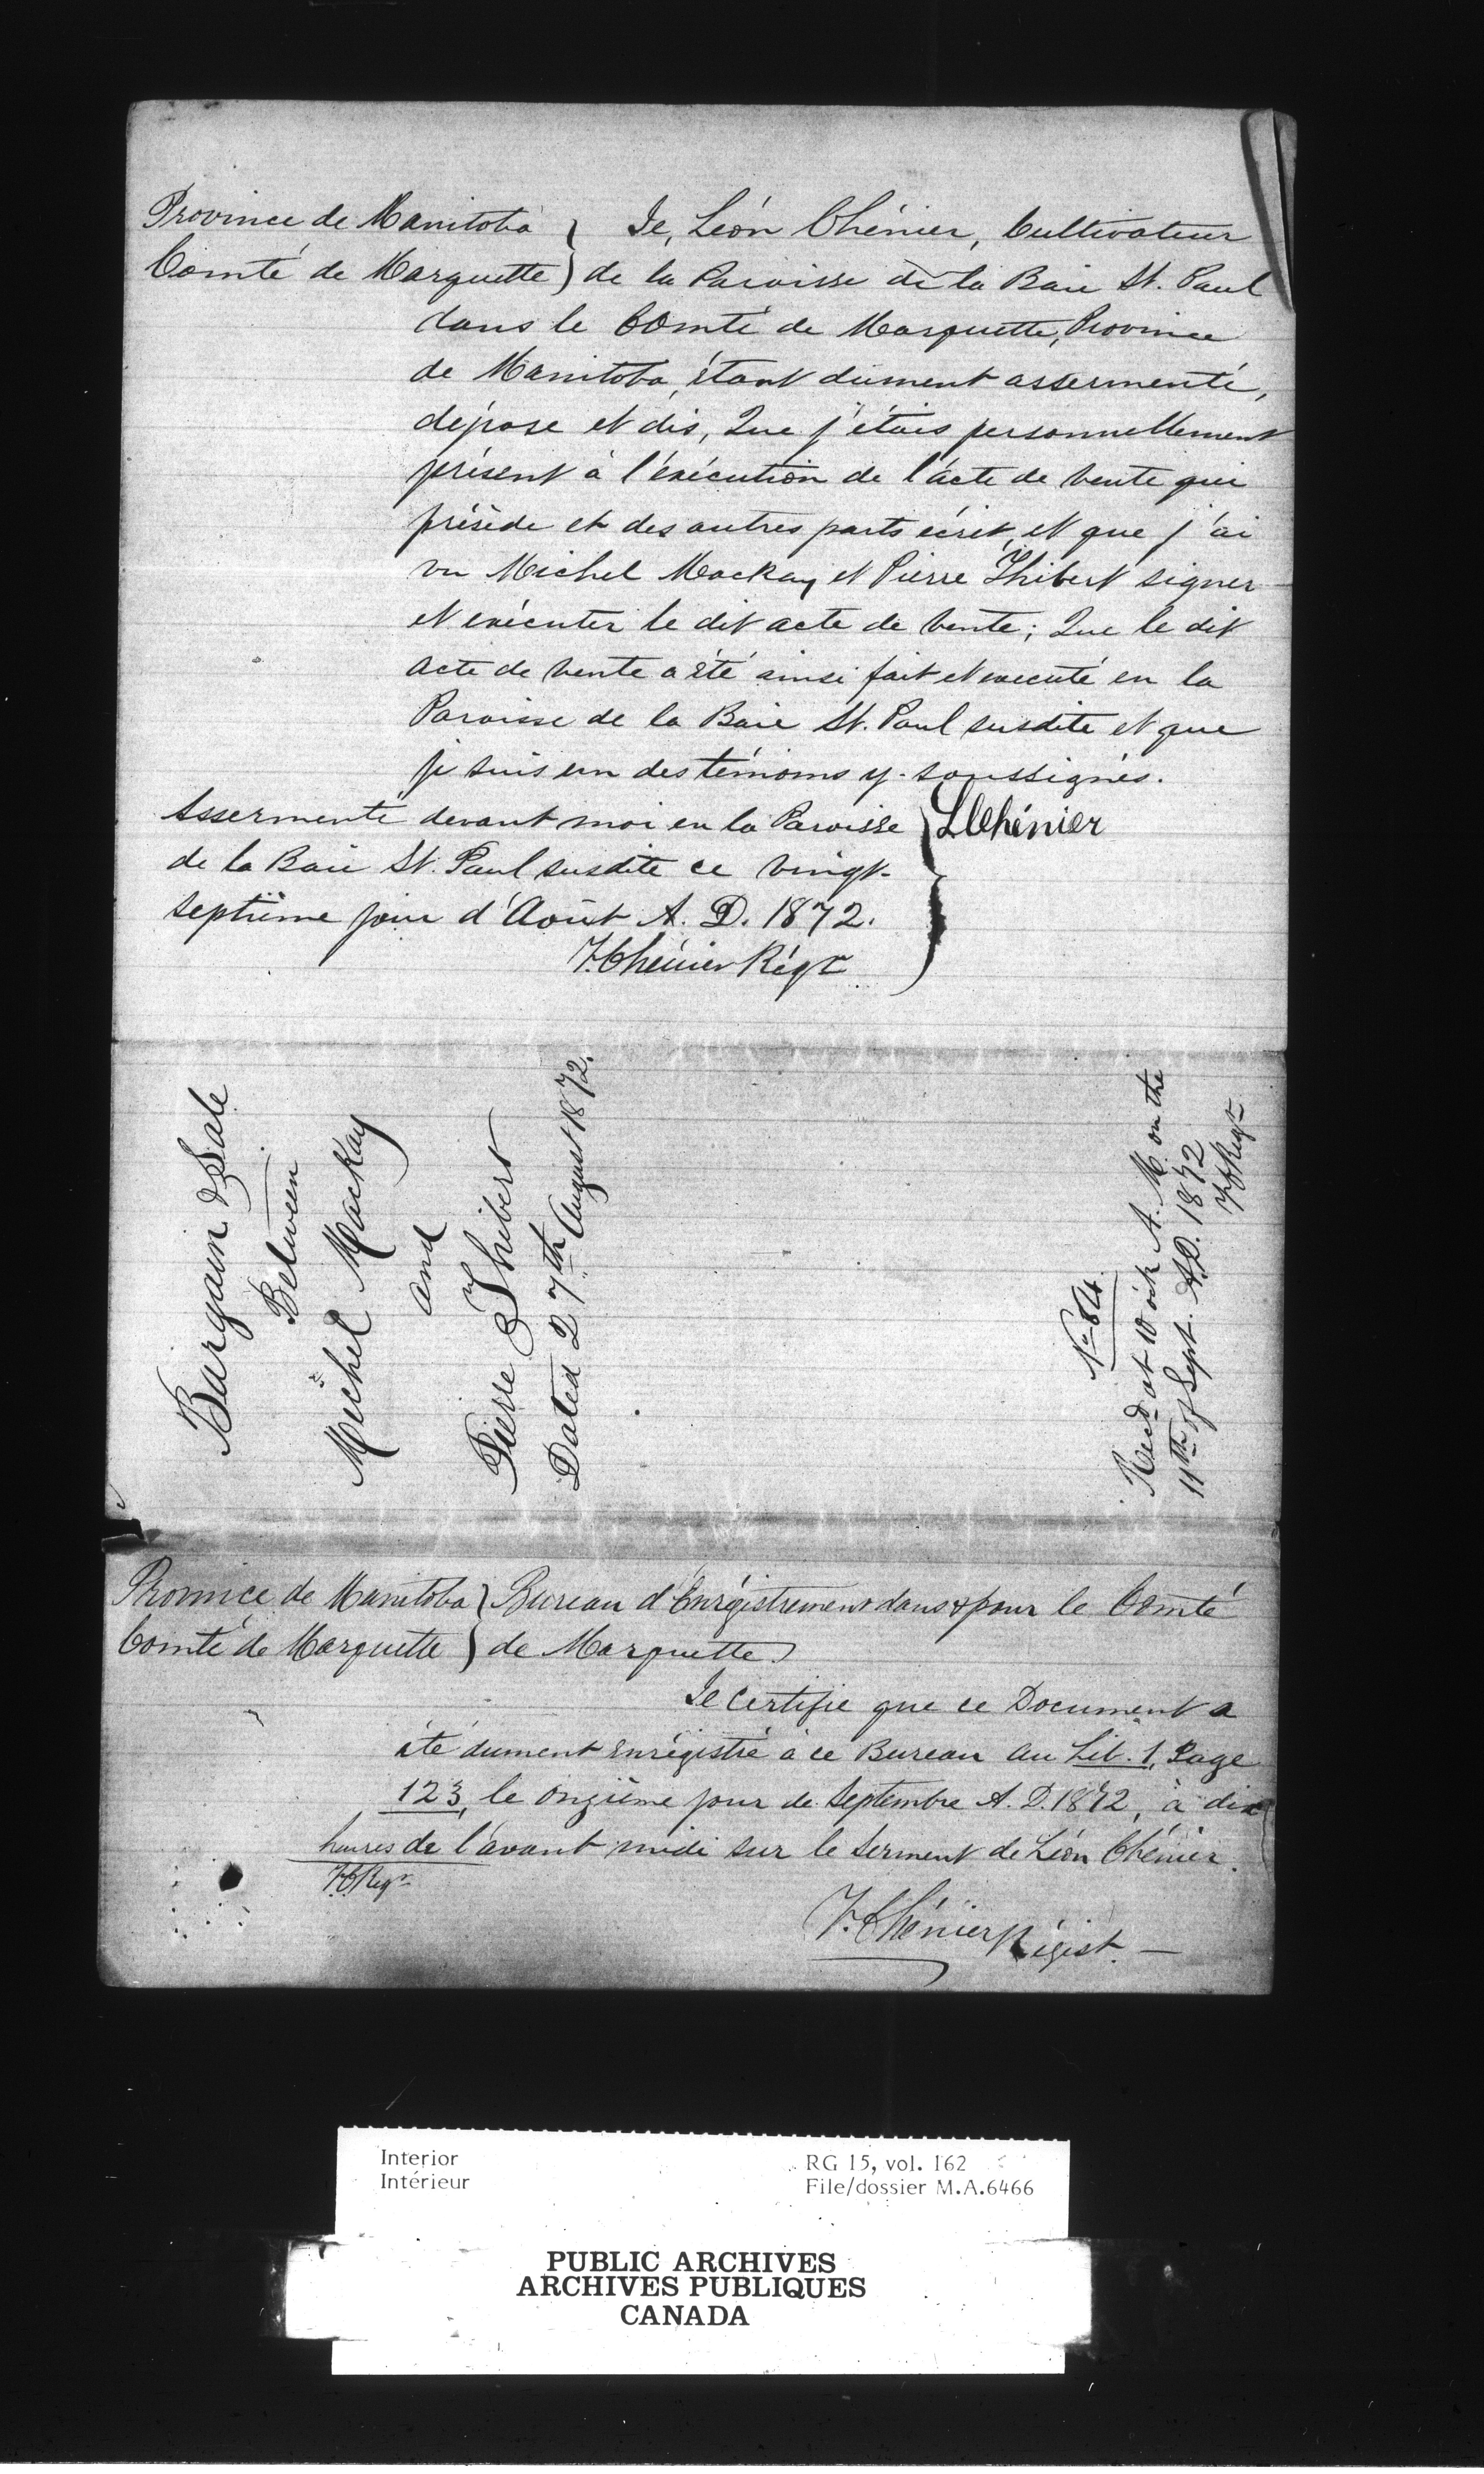 Province de Manitoba } Je, Léon Chénier, Cultivateur
Comté de Marquette } de la Paroisse de la Baie St. Paul
dans le Comté de Marquette, Province
de Manitoba, étant dument assermenté,
dépose et dis, Que j'étais personnellement
présent à l'exécution de l'acte de vente qui
précède et des autres parts écrit, et que j'ai
vu Michel Mackay et Pierre Thibert signer
et exécuter le dit acte de vente; Que le dit
acte de vente a été ainsi fait et executé en la
Paroisse de la Baie St. Paul susdite et que
je suis un des témoins y-soussignés.
Assermenté devant moi en la Paroisse } LChénier
de la Baie St. Paul susdite ce vingt-
septième jour d'Août A. D. 1872.
F. Chénier Régr
Bargain & Sale
Between
Michel Mackay
and
Pierre Thibert
Dated 27th August 1872.
No 84.
Recd at 10 ock A. M. on the
11th of Sept. A.D. 1872
FC Regr
Province de Manitoba } Bureau d'Enrégistrement dans & pour le Comté
Comté de Marquette } de Marquette
Je certifie que ce Document a
été dument enrégistré à ce Bureau au Lib. 1, Page
123, le onzième jour de Septembre A. D. 1872, à dix
heures de l'avant midi sur le serment de Léon Chénier.
FC Regr
F. Chénier Régist.
Interior
Intérieur
RG 15, vol. 162
File/dossier M.A.6466
PUBLIC ARCHIVES
ARCHIVES PUBLIQUES
CANADA